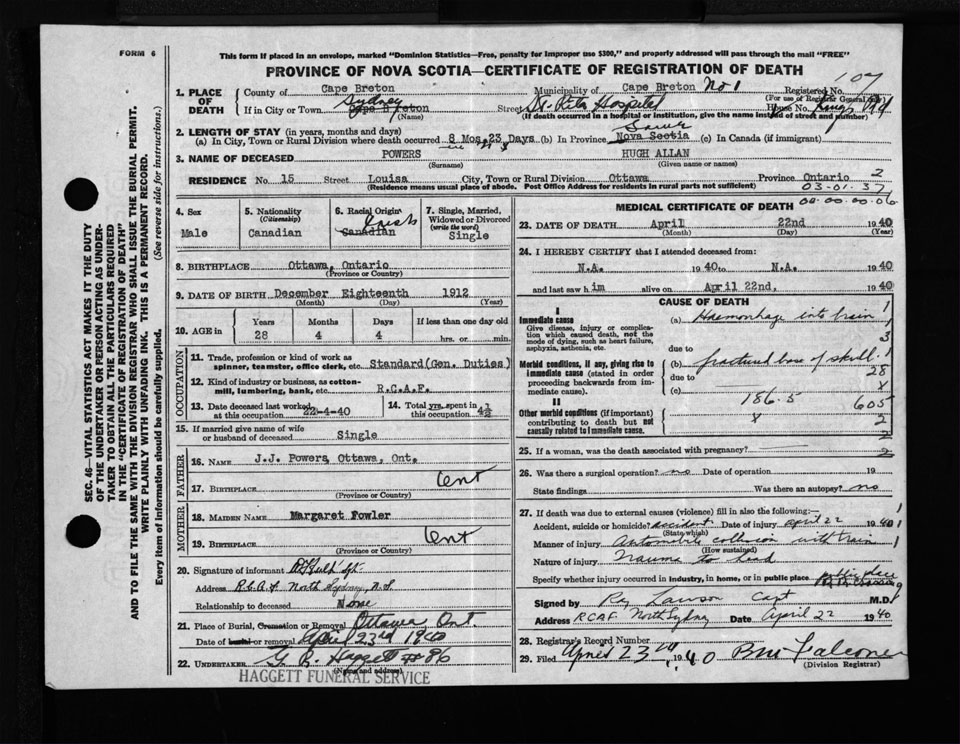 FORM 6
This form if placed in an envelope, marked "Dominion Statistics—Free, penalty for improper use $300," and properly addressed will pass through the mail "FREE"
PROVINCE OF NOVA SCOTIA—CERTIFICATE OF REGISTRATION OF DEATH
107
1. PLACE OF DEATH
County of Cape Breton Municipality of Cape Breton No 1 Registered No.
(For use of Registrar General only)
If in City or Town Sydney Cape Breton Street St. Rita Hospital House No.
(Name) (If death occurred in a hospital or institution, give the name instead of street and number)
2. LENGTH OF STAY (in years, months and days)
(a) In City, Town or Rural Division where death occurred 8 Mos. 23 Days (b) In Province Same Nova Scotia (c) In Canada (if immigrant)
3. NAME OF DECEASED POWERS HUGH ALLAN
(Surname) (Given name or names)
RESIDENCE No. 15 Street Louisa City, Town or Rural Division Ottawa Province Ontario 2
(Residence means usual place of abode. Post Office Address for residents in rural parts not sufficient) 03-01.37
4. Sex Male
5. Nationality (Citizenship) Canadian
6. Racial Origin Irish Canadian
7. Single, Married, Widowed or Divorced (write the word) Single
8. BIRTHPLACE Ottawa, Ontario
(Province or Country)
9. DATE OF BIRTH December Eighteenth 1912
(Month) (Day) (Year)
10. AGE in Years 28 Months 4 Days 4 If less than one day old hrs. or min.
OCCUPATION
11. Trade, profession or kind of work as spinner, teamster, office clerk, etc. Standard (Gen. Duties)
12. Kind of industry or business, as cotton-mill, lumbering, bank, etc. R.C.A.F.
13. Date deceased last worked at this occupation 22-4-40
14. Total yrs. spent in this occupation 4½
15. If married give name of wife or husband of deceased Single
FATHER
16. NAME J.J. Powers, Ottawa, Ont.
17. BIRTHPLACE Ont
(Province or Country)
MOTHER
18. MAIDEN NAME Margaret Fowler
19. BIRTHPLACE Ont
(Province or Country)
20. Signature of informant
Address R.C.A.F. North Sydney, N.S.
Relationship to deceased None
21. Place of Burial, Cremation or Removal Ottawa, Ont.
Date of burial or removal April 23rd 1940
22. UNDERTAKER G. B. Haggett #86
(Name and address)
HAGGETT FUNERAL SERVICE
MEDICAL CERTIFICATE OF DEATH 00.00.00.06
23. DATE OF DEATH April 22nd 1940
(Month) (Day) (Year)
24. I HEREBY CERTIFY that I attended deceased from
N.A. 1940 to N.A. 1940
and last saw h im alive on April 22nd, 1940
CAUSE OF DEATH
I
Immediate cause
Give disease, injury or complication which caused death, not the mode of dying, such as heart failure, asphyxia, asthenia, etc.
(a) Haemorrhage into brain 1
3
due to
Morbid conditions, if any, giving rise to immediate cause (stated in order proceeding backwards from immediate cause).
(b) fractured base of skull. 1
28
due to
(c) x
II
186.5 605
Other morbid conditions (if important) contributing to death but not causally related to immediate cause.
x 2
2
25. If a woman, was the death associated with pregnancy? 2
26. Was there a surgical operation? no Date of operation 19
State findings Was there an autopsy? no
27. If death was due to external causes (violence) fill in also the following:—
Accident, suicide or homicide? accident Date of injury April 22 1940
(State which)
Manner of injury Automobile collision with train 1
(How sustained)
Nature of injury Trauma to head
Specify whether injury occurred in industry, in home, or in public place public place
Signed by Ray Lawson Capt M.D.
Address RCAF North Sydney Date April 22 1940
28. Registrar's Record Number
29. Filed April 23rd, 1940 B M Falconer
(Division Registrar)
SEC. 46—VITAL STATISTICS ACT MAKES IT THE DUTY
OF THE UNDERTAKER OR PERSON ACTING AS UNDER-
TAKER TO OBTAIN ALL THE PARTICULARS REQUIRED
IN THE "CERTIFICATE OF REGISTRATION OF DEATH"
AND TO FILE THE SAME WITH THE DIVISION REGISTRAR WHO SHALL ISSUE THE BURIAL PERMIT.
WRITE PLAINLY WITH UNFADING INK. THIS IS A PERMANENT RECORD.
Every item of information should be carefully supplied. (See reverse side for instructions.)